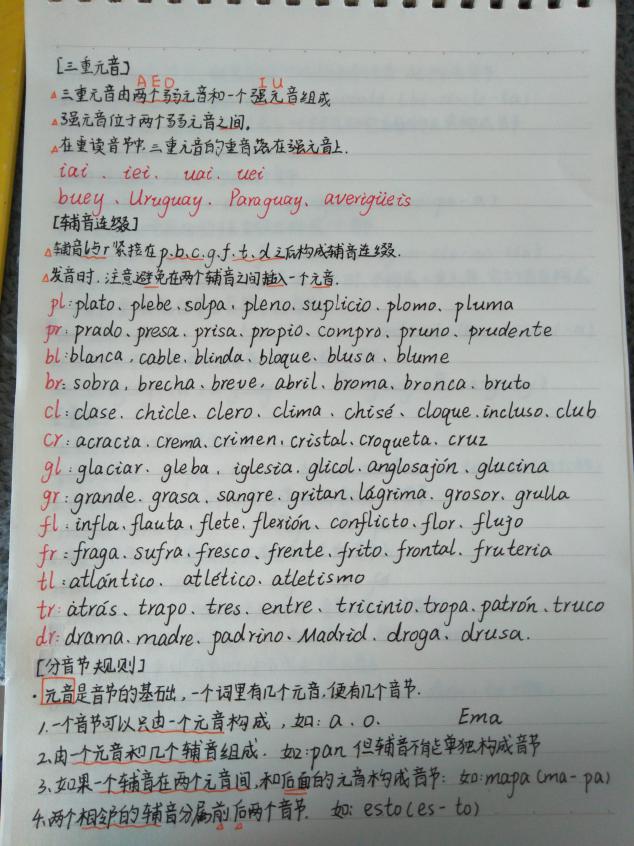 [三重元音]
A E O I U
△三重元音由两个弱元音和一个强元音组成
△强元音位于两个弱元音之间.
△在重读音节中,三重元音的重音落在强元音上.
iai 、 iei、 uai、 uei
buey、Uruguay、Paraguay、averigüeis
[辅音连缀]
△辅音l与r紧接在p.b.c.g.f.t.d之后构成辅音连缀.
△发音时.注意避免在两个辅音之间插入一个元音.
pl: plato、plebe、solpa、pleno、suplicio、plomo、pluma
pr: prado、presa、prisa、propio、compro、pruno、prudente
bl: blanca、cable、blinda、bloque、blusa、blume
br: sobra、brecha、breve、abril、broma、bronca、bruto
cl: clase、chicle、clero、clima、chisé、cloque.incluso、club
cr: acracia、crema、crimen、cristal、croqueta、cruz
gl: glaciar、gleba、iglesia、glicol、anglosajón、glucina
gr: grande、grasa、sangre、gritan、lágrima、grosor、grulla
fl: infla、flauta、flete、flexión、conflicto、flor、flujo
fr: fraga、sufra、fresco、frente、frito、frontal、fruteria
tl: atlántico、atlético、atletismo
tr: atrás、trapo、tres、entre、tricinio、tropa、patrón、truco
dr: drama、madre、padrino、Madrid、droga、drusa.
[分音节规则]
·元音是音节的基础,一个词里有几个元音,便有几个音节.
1.一个音节可以只由一个元音构成,如: a、o. Ema
2.由一个元音和几个辅音组成.如:pan 但辅音不能单独构成音节
3.如果一个辅音在两个元音间,和后面的元音构成音节: 如:mapa(ma-pa)
4.两个相邻的辅音分属前后两个音节. 如: esto(es-to)